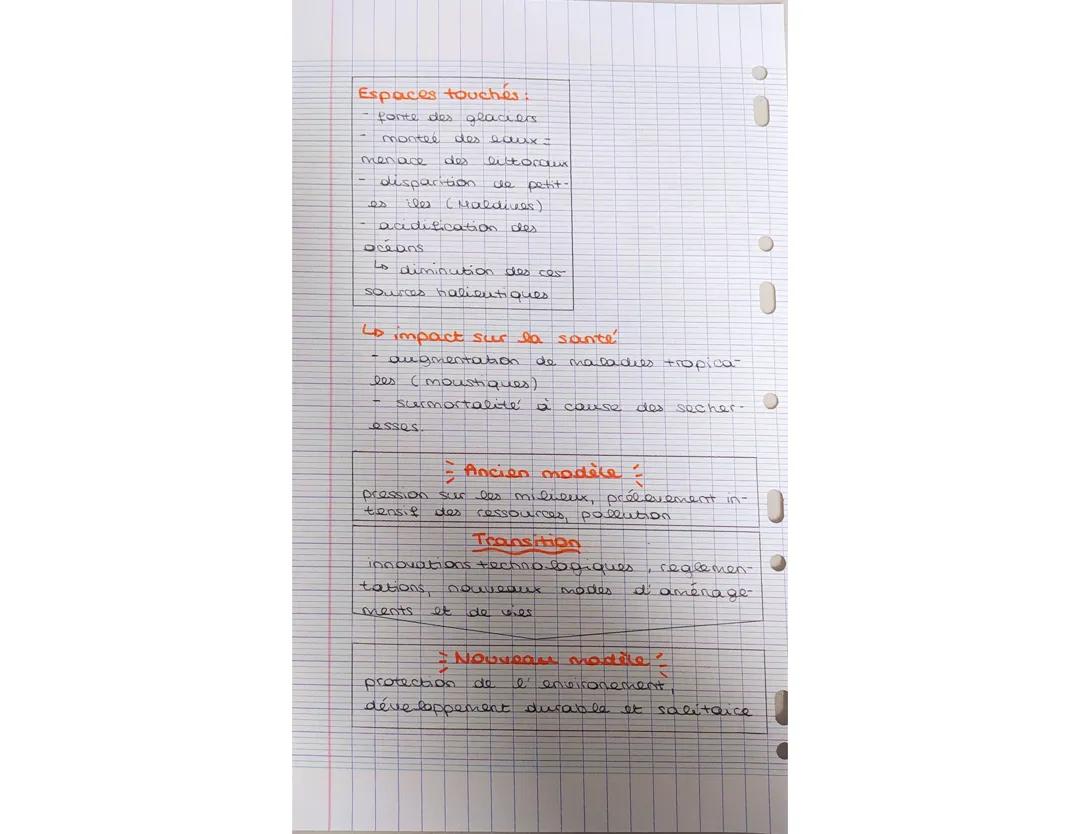 Espaces touchés :
- fonte des glaciers
- monteé des eaux =
menace des littoraux
- disparition de petit-
es îles (Maldives)
- acidification des
océans
↳ diminution des res
sources halieutiques
↳ impact sur la santé
- augmentation de maladies tropica-
les (moustiques)
- surmortalité à cause des secher-
esses.
Ancien modèle
pression sur les milieux, prélèvement in-
tensif des ressources, pollution
Transition
innovations technologiques, réglemen-
tations, nouveaux modes d'aménage-
ments et de vies
Nouveau modèle
protection de l'environement,
développement durable et salitaire